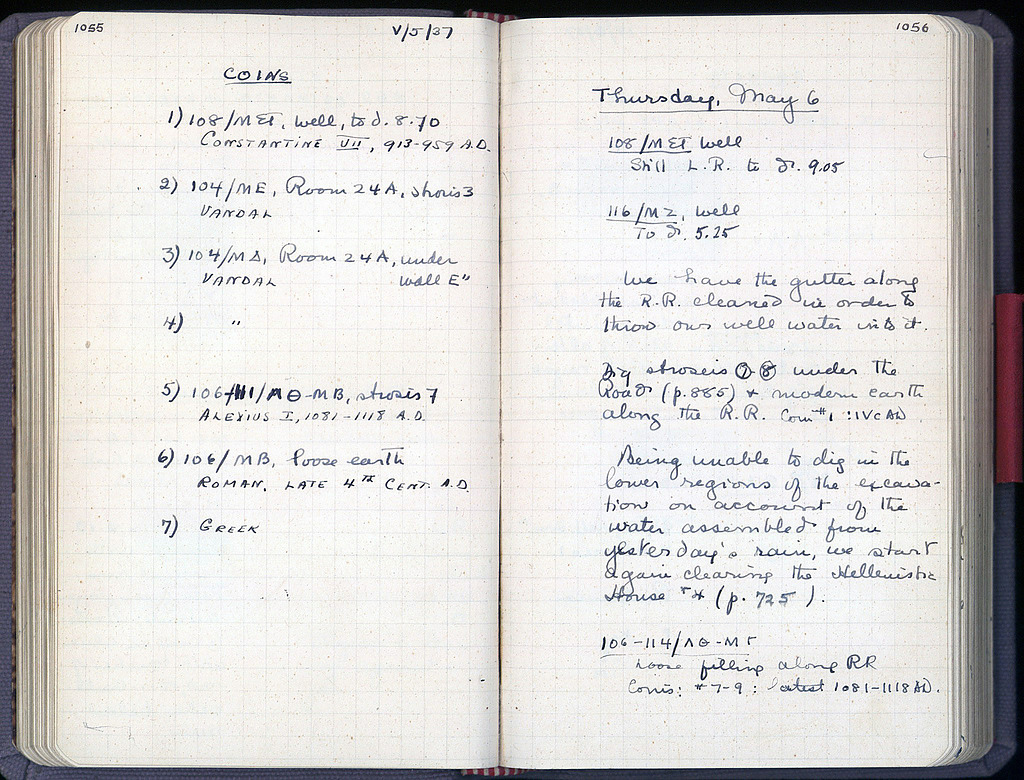 1055
V/5/37
COINS
1) 108/ΜΣΤ, well, to d. 8.70
CONSTANTINE VII, 913-959 A.D.
2) 104/ΜΕ, Room 24A, strosis 3
VANDAL
3) 104/ΜΔ, Room 24A, under
VANDAL wall E"
4) "
5) 106-111/ΛΘ-ΜΒ, strosis 7
ALEXIUS I, 1081-1118 A.D.
6) 106/ΜΒ, loose earth
ROMAN, LATE 4TH CENT. A.D.
7) GREEK
1056
Thursday, May 6
108/ΜΣΤ well
Still L.R. to d. 9.05
116/ΜΖ, well
To d. 5.25
We have the gutter along
the R.R. cleaned in order to
throw our well water into it.
Dig stroseis 7 8 under the
Road (p. 885) & modern earth
along the R.R. Coin #1 : IV c AD
Being unable to dig in the
lower regions of the excava-
tion on account of the
water assembled from
yesterday's rain, we start
again clearing the Hellenistic
House (p. 725).
106-114/ΛΘ-ΜΓ
Loose filling along RR
Coins: #7-9 : latest 1081-1118 AD.